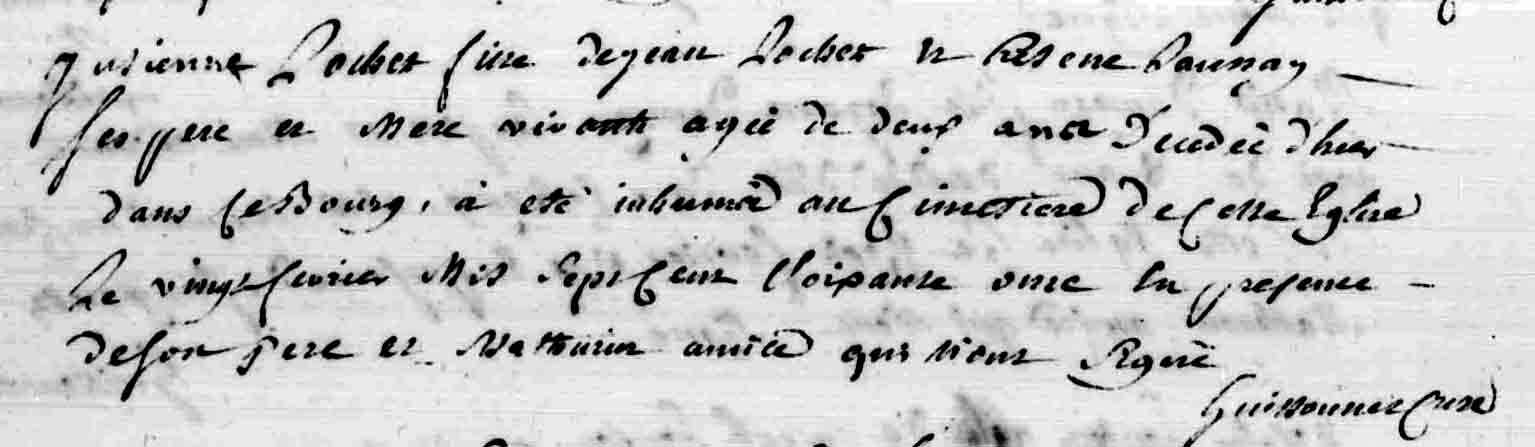 Pochet fille de jean Pochet et Launay
ses pere et Mere vivants agée de deux ans Decedée d'hier
dans Ce Bourg, à eté inhumée au Cimetiere de Cette Eglise
Le vingt fevrier Mil Sept Cent Soixante onze En presence
de son pere et Mathurin qui n'ont Signé
Curé